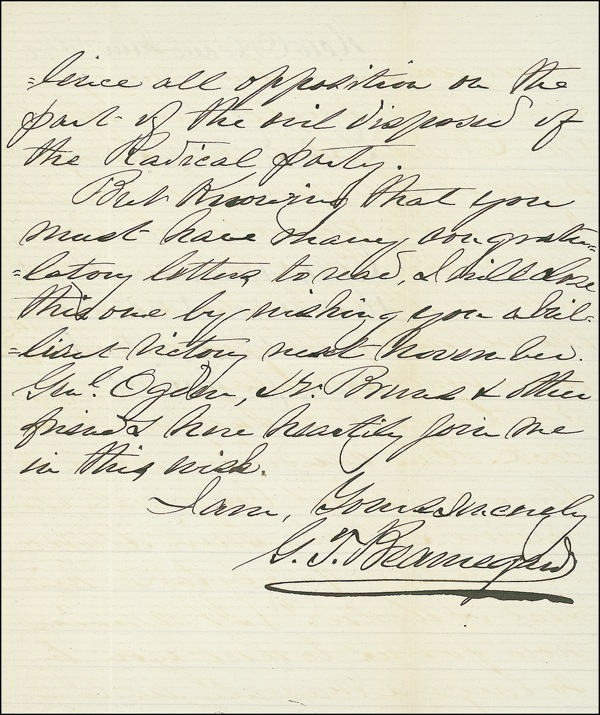 =lence all opposition on the
part of the evil disposed of
the Radical party.
But Knowing that you
must have many congratu=
=latory letters to read, I will close
this one by wishing you a bril=
=liant victory next november.
Genl. Ogden, Dr. Burns & other
friends here heartily join me
in this wish.
I am, Yours Sincerely
G. T. Beauregard